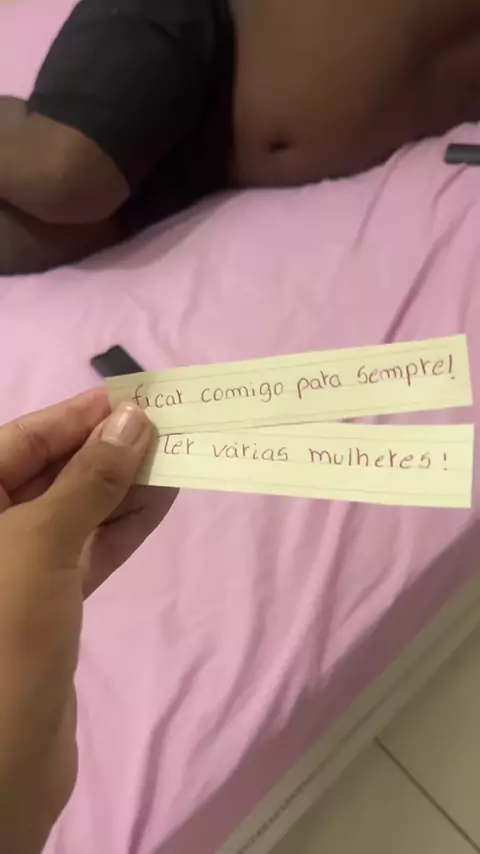 ficar comigo para sempre!
Ter várias mulheres!